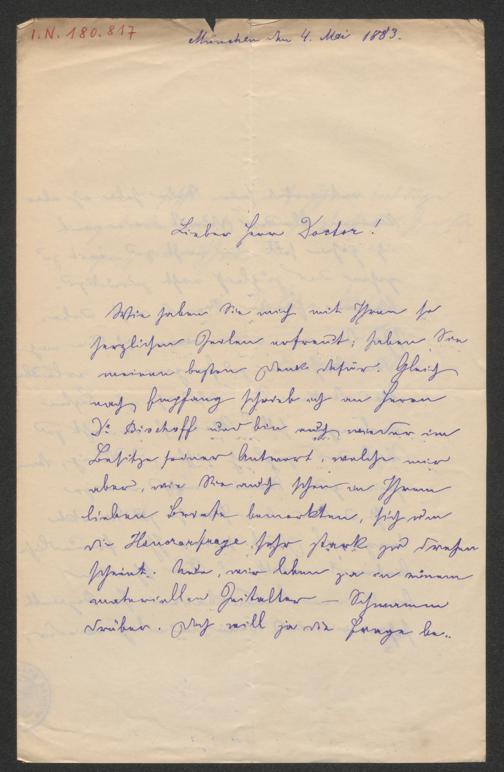 I.N. 180.817
München den 4. Mai 1883.
Lieber Herr Doctor!
Wie haben Sie mich mit Ihren so
herzlichen Zeilen erfreut; haben Sie
meinen besten Dank dafür. Gleich
nach Empfang schrieb ich an Herrn
Dr. Bischoff und bin auch wieder im
Besitze seiner Antwort, welche mir
aber, wie Sie auch schon in Ihrem
lieben Briefe bemerkten, sich um
die Honorarfrage sehr stark zu drehen
scheint. Nun, wir leben ja in einem
materiellen Zeitalter — Schwamm
drüber. Ich will ja die Frage be-